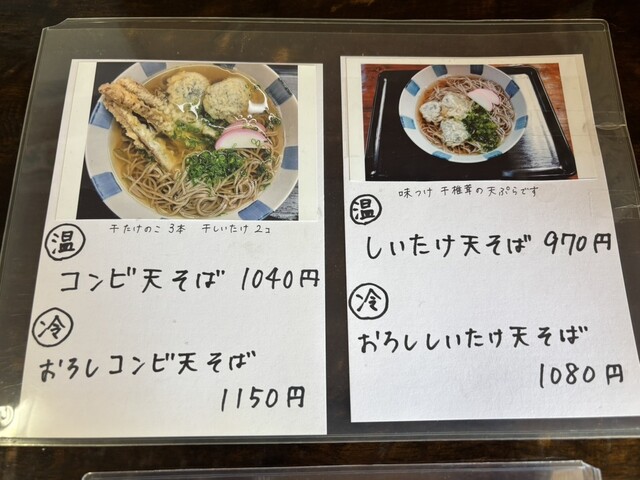 干たけのこ 3本 干しいたけ 2コ
温
コンビ天そば 1040円
冷
おろしコンビ天そば
1150円
味つけ 干椎茸の天ぷらです
温
しいたけ天そば 970円
冷
おろししいたけ天そば
1080円